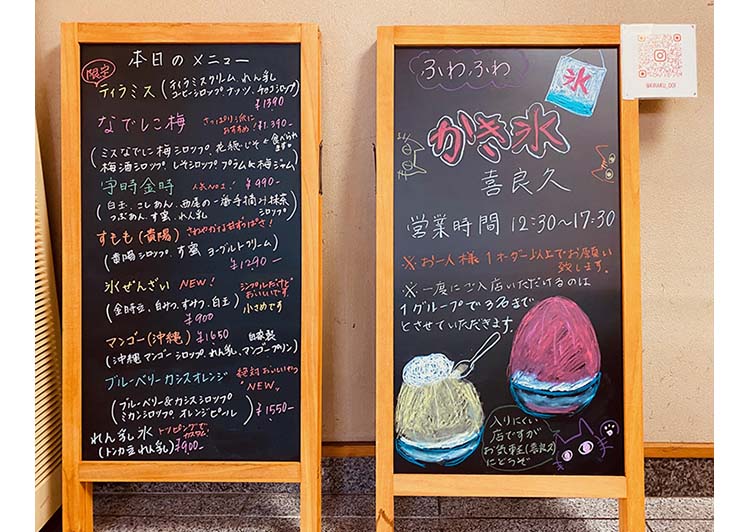 本日のメニュー
限定
ティラミス(ティラミスクリーム れん乳
コーヒーシロップ ナッツ、チョコシロップ)
¥1390
なでしこ梅 さっぱり派に
おすすめ! ¥1,390-
(ミスなでしこ梅シロップ、花紙・じそ ← 食べられます。
梅酒シロップ、しそシロップ プラム&梅ジャム)
宇時金時 人気No.1! ¥990-
(白玉、こしあん、西尾の一番手摘み抹茶
つぶあん、す蜜、れん乳 シロップ)
すもも(貴陽) さわやかなあまずっぱさ!
(貴陽シロップ、す蜜 ヨーグルトクリーム)
¥1290-
氷ぜんざい NEW! シンプルだけど
おいしいです。
(金時豆、白みつ、すみつ、白玉) 小さめです
¥900
マンゴー(沖縄) ¥1650 自家製
(沖縄マンゴーシロップ、れん乳、マンゴープリン)
ブルーベリーカシスオレンジ 絶対おいしいやつ
NEW
(ブルーベリー&カシスシロップ
ミカンシロップ オレンジピール) ¥1550-
れん乳氷 トッピングで
カスタム!
(トンカ豆れん乳) ¥900-
ふわふわ
氷
かき氷
喜良久
営業時間 12:30〜17:30
※お一人様1オーダー以上でお願い
致します。
※一度にご入店いただけるのは
1グループで3名まで
とさせていただきます。
入りにくい
店ですが
お気軽(喜良久)
にどうぞ
@KIRAKU_DOI